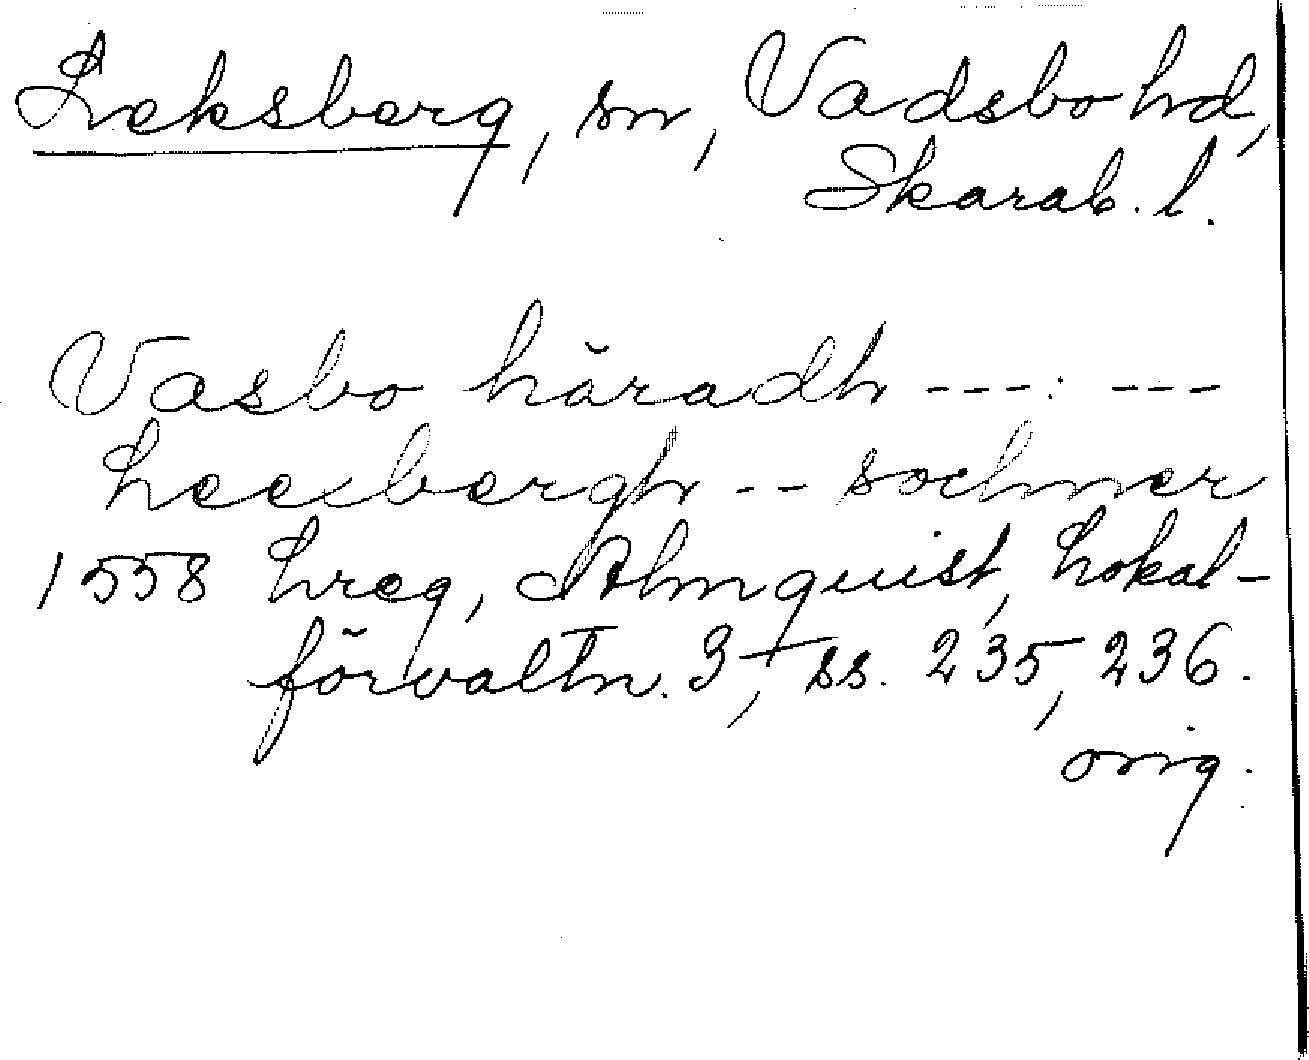 Leksberg, sn, Vadsbo hd,
Skarab. l.
Vasbo häradh ---: ---
Leexbergh -- sochner
1558 Lreg, Almquist, Lokal-
förvaltn. 3, ss. 235, 236.
orig.